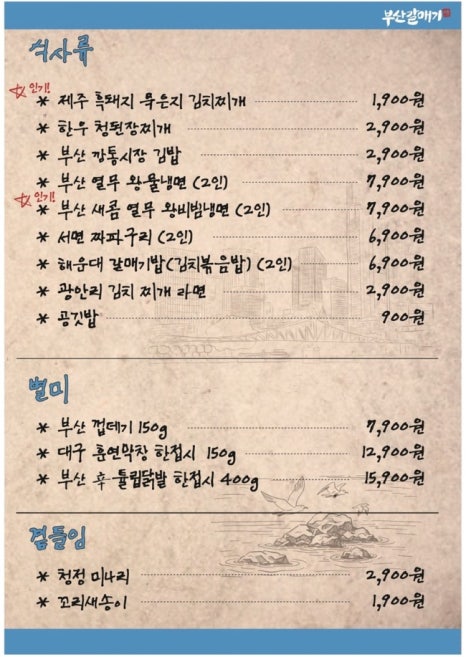 부산갈매기
식사류
인기!
* 제주 흑돼지 묵은지 김치찌개 1,900원
* 한우 청된장찌개 2,900원
* 부산 깡통시장 김밥 2,900원
* 부산 열무 왕물냉면 (2인) 7,900원
인기!
* 부산 새콤 열무 왕비빔냉면 (2인) 7,900원
* 서면 짜파구리 (2인) 6,900원
* 해운대 갈매기밥(김치볶음밥) (2인) 6,900원
* 광안리 김치 찌개 라면 2,900원
* 공깃밥 900원
별미
* 부산 껍데기 150g 7,900원
* 대구 훈연막창 한접시 150g 12,900원
* 부산 후 튤립닭발 한접시 400g 15,900원
곁들임
* 청정 미나리 2,900원
* 꼬리새송이 1,900원